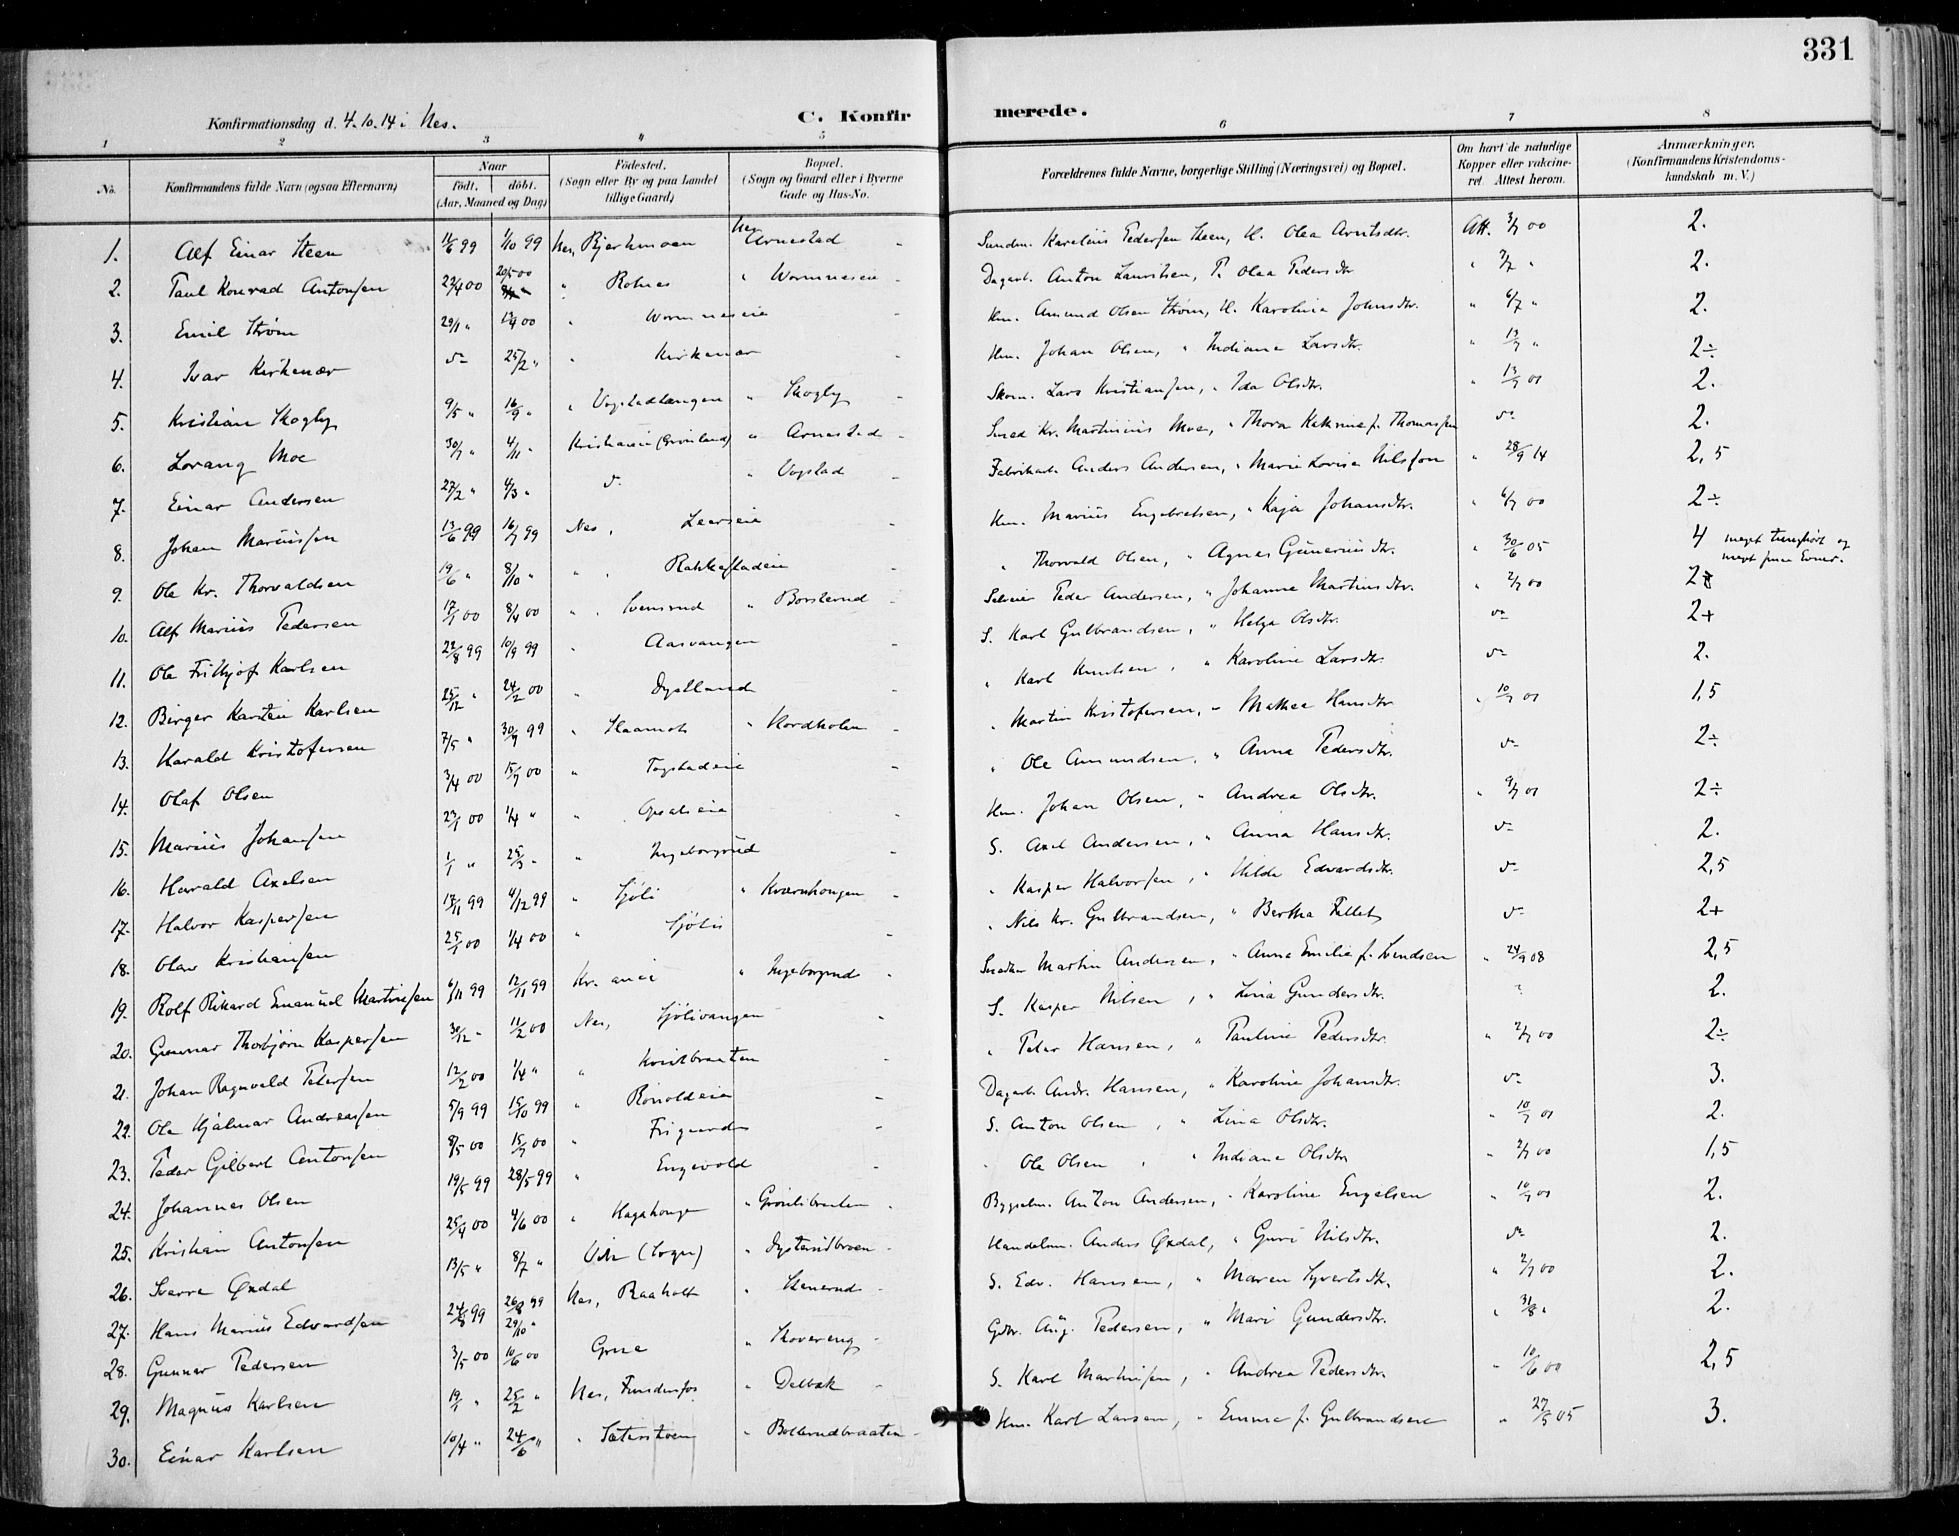 331
Konfirmationsdag d. 4.10.14 i Nes.
C. Konfirmerede.
1 2 3 4 5 6 7 8
No.
Konfirmandens fulde Navn (ogsaa Efternavn)
Naar
født. døbt.
(Aar, Maaned og Dag)
Fødested.
(Sogn eller By og paa Landet
tillige Gaard)
Bopæl.
(Sogn og Gaard eller i Byerne
Gade og Hus-No.
Forældrenes fulde Navne, borgerlige Stilling (Næringsvei) og Bopæl.
Om havt de naturlige
Kopper eller vakcine-
ret. Attest herom.
Anmærkninger.
(Konfirmandens Kristendoms-
kundskab m. V.)
1. Alf Einar Steen 11/6 99 1/10 99 Nes, Bjerkmoen Nes Arnestad Karelius Pedersen Steen, H. Olea Arntsdtr. Att. 3/7 00 2.
2. Paul Konrad Antonsen 22/4 00 20/5 00 " Rotnes " Wormneseie Dagarb. Anton Lauritsen, P. Olea Pedersdtr 3/7 " 2.
3. Emil Strøm 29/1 " 17/9 00 " Wormneseie Hm. Amund Olsen Strøm, H. Karoline Johnsdtr. " 6/7 " 2.
4. Ivar Kirkenær d- 25/2 " " Kirkenær Hm. Johan Olsen, " Indiana Larsdtr. " 13/7 " 2÷
5. Kristian Skogby 9/5 " 16/9 " " Vogstadlængen " Skogby Skom. Lars Kristiansen, " Ida Olsdtr. " 13/7 01 2.
6. Lorang Moe 30/7 " 4/11 " Kristiania (Grønland) " Arnestad Smed Kr. Martinius Moe, " Thora Katrine f. Thomassen d- 2.
7. Einar Andersen 27/2 " 4/3 " d- " Vogstad Fabrikarb. Anders Andersen, " Marie Lovise Nilsson " 28/9 14 2,5
8. Johan Mariussen 13/6 99 16/7 99 Nes, Leerseie Hm. Marius Engebretsen, " Kaja Johansdtr. " 6/7 00 2÷
9. Ole Kr. Thorvaldsen 19/6 " 8/10 " " Rakkestadeie " Thorvald Olsen, " Agnes Guneriusdtr. " 30/6 05 4 meget tunghørt og
meget smaa Evner.
10. Alf Marius Pedersen 17/1 00 8/4 00 " Svensrud " Borsterud Selveier Peder Andersen, " Johanne Martinsdtr. " 2/7 00
11. Ole Frithjof Karlsen 22/8 99 10/9 99 " Aasvangen S. Karl Gulbrandsen, " Helga Olsdtr. d- 2+
12. Birger Karsten Karlsen 25/12 " 24/2 00 " Dystland " Karl Knutsen, " Karoline Larsdtr. d- 2.
13. Harald Kristofersen 7/5 " 30/7 99 " Haamoh " Nordholen " Martin Kristofersen, " Mathea Hansdtr " 10/7 01 1,5
14. Olaf Olsen 3/4 00 15/7 00 " Fogstadeie " Ole Amundsen, " Anna Pedersdtr. d- 2÷
15. Marius Johansen 27/1 00 1/4 " " Opsaleie Hm. Johan Olsen, " Andrea Olsdtr. " 9/7 01 2÷
16. Harald Axelsen 1/1 " 25/3 " " Ingeborgrud S. Axel Andersen, " Anna Hansdtr. d- 2.
17. Halvor Kaspersen 17/11 99 4/12 99 " Sjøli " Kværnhougen " Kasper Halvorsen, " Hilda Edvardsdtr. d- 2,5
18. Olav Kristiansen 25/1 00 1/4 00 " Sjøli " Nils Kr. Gulbrandsen, " Bertha Fillet d- 2+
19. Rolf Rikard Emanuel Martinsen 6/11 99 12/11 99 Kr. ania " Ingeborgrud Martin Andersen, " Anna Emilie f. Svendsen " 24/9 08 2,5
20. Gunnar Thorbjørn Kaspersen 30/12 " 11/2 00 Nes, Sjølivangen S. Kasper Nilsen, " Lina Gundersdtr. ? 2.
21. Johan Ragnvald Petersen 12/2 00 1/4 " " Kvistbraaten " Peter Hansen, " Pauline Pedersdtr. " 2/7 00 2÷
22. Ole Hjalmar Andreassen 5/9 99 15/10 99 " Ronoldeie Dagarb. Andr. Hansen, " Karoline Johansdtr. d- 3.
23. Peder Gilbert Antonsen 8/5 00 15/7 00 " Frigaard S. Anton Olsen, " Lina Olsdtr. " 10/7 01 2.
24. Johannes Olsen 19/5 99 28/5 99 " Engevold " Ole Olsen, " Indiane Olsdtr " 2/7 00 1,5
25. Kristian Antonsen 25/4 00 4/6 00 " Hagahougen " Grønlibraaten Bygselm. Anton Andersen, " Karoline Engelsen " 10/7 01 2.
26. Sverre Øxdal 13/5 " 8/7 " Vik (Sogn) " Dysterudbroen Handelsm. Anders Øxdal, " Guri Nilsdtr. d- 2.
27. Hans Marius Edvardsen 24/8 99 29/10 " Nes, Raaholt " Stenerud S. Edv. Hansen, " Maren Syvertsdtr. " 2/7 00 2.
28. Gunnar Pedersen 3/5 00 10/6 00 Grue " Skovereng Gdbr. Aug. Pedersen, " Mari Gundersdtr. " 31/8 " 2.
29. Magnus Karlsen 19/1 " 25/2 " Nes, Funderfos " Delbæk S. Karl Martinsen, " Andrea Pedersdtr. " 10/6 00 2,5
30. Einar Karlsen 10/4 " 24/6 " " Sæterstøen " Bollerudbraaten Hm. Karl Larsen, " Emma f. Gulbrandsen " 27/5 05 3.